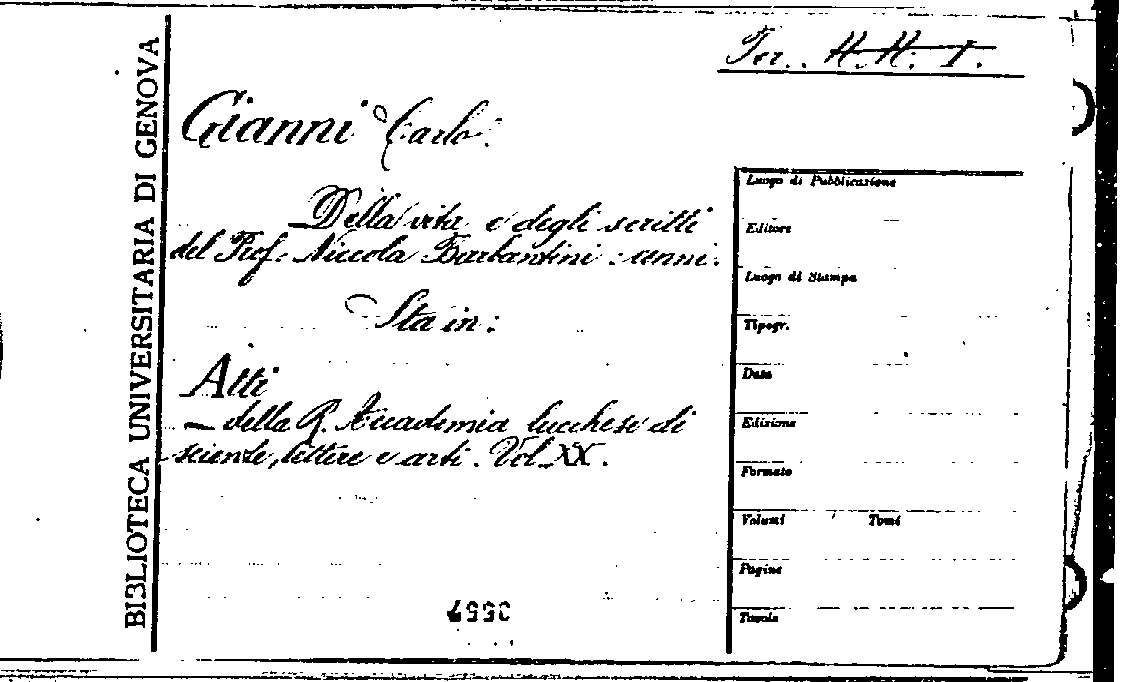 Per. H.H. I.
BIBLIOTECA UNIVERSITARIA DI GENOVA
Gianni Carlo.
Della vita e degli scritti
del Prof. Niccola Barbantini: cenni.
Sta in:
Atti
– della R. Accademia lucchese di
scienze, lettere e arti. Vol. XX.
Luogo di Pubblicazione
Editore
Luogo di Stampa
Tipogr.
Data
Edizione
Formato
Volumi Tomi
Pagine
Tavole